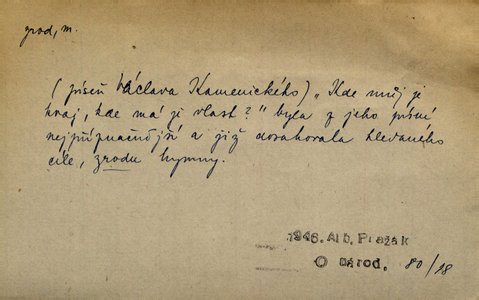 zrod, m.
(píseň Václava Kamenického) „Kde můj je
kraj, kde má je vlast?" byla z jeho písní
nejpříznačnější a již dosahovala hledaného
cíle, zrodu hymny.
1946. Alb. Pražák
O národ. 80/18